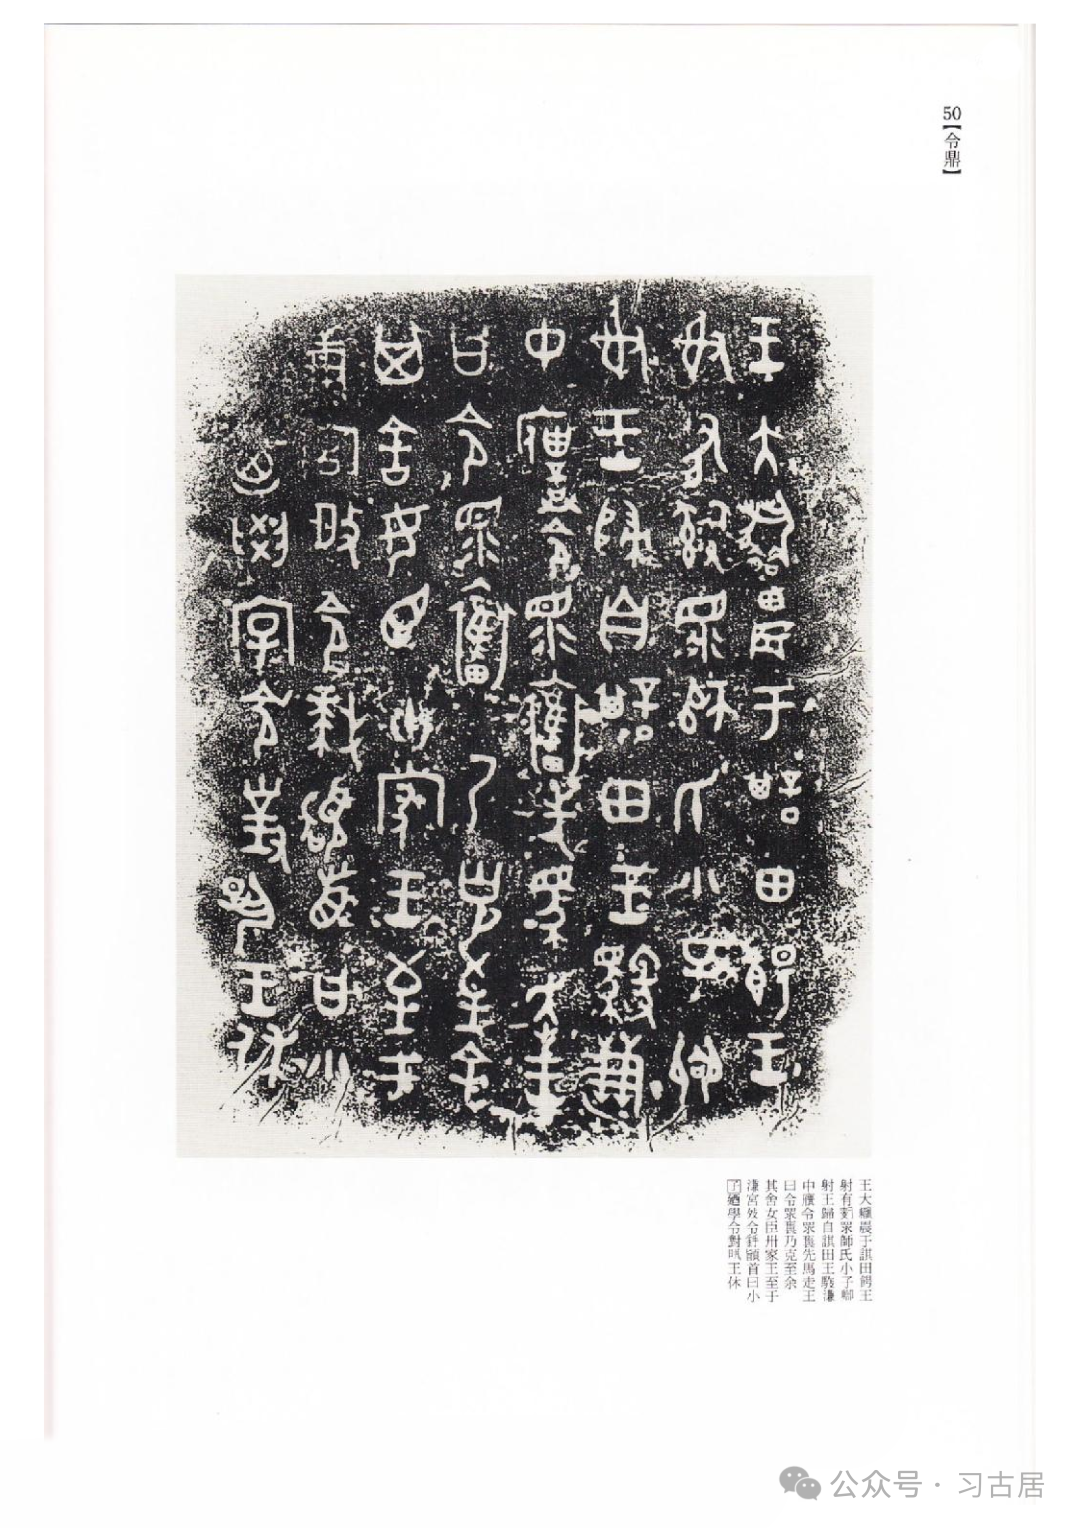 50【令鼎】
王大耤農于諆田餳王
射有嗣眔師氏小子㗬
射王歸自諆田王馭溓
中䧹令眔奮先馬走王
曰令眔奮乃克至余
其舍女臣卅家王至于
溓宮令拜䭫首曰小
子廼學令對王休
公众号·习古居